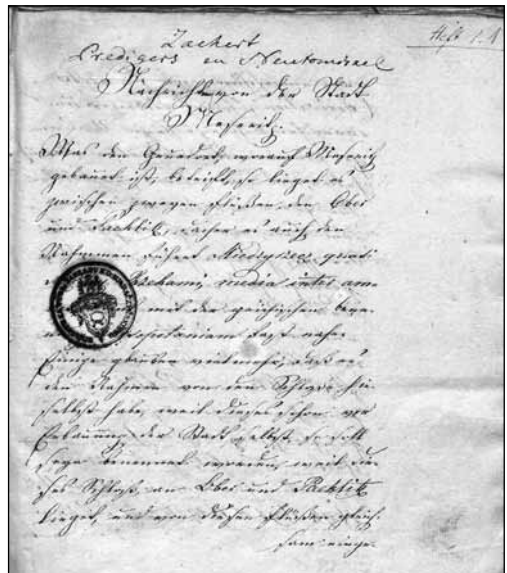 Heft 1.
Zachert
Predigers in Neutomischel
Nachricht von der Stadt
Meseritz.
Was den Grundort, worauf Meseritz
gebauet ist, betrifft, so lieget es
zwischen zweyen Flüßen, den Ober
und Packlitz, daher es auch den
Nahmen führet Miedzyrzec, quasi
Rzekami, media inter am-
mit der griechischen
Mesopotamiam fast
Einige glauben vielmehr, daß es
den Nahmen von dem Schloße hie-
selbst habe, weil dieses schon vor
Erbauung der Stadt selbst, so soll
seyn benennet worden, weil die-
ses Schloß an Ober und Packlitz
lieget, und von diesen Flüßen gleich-
sam einge-